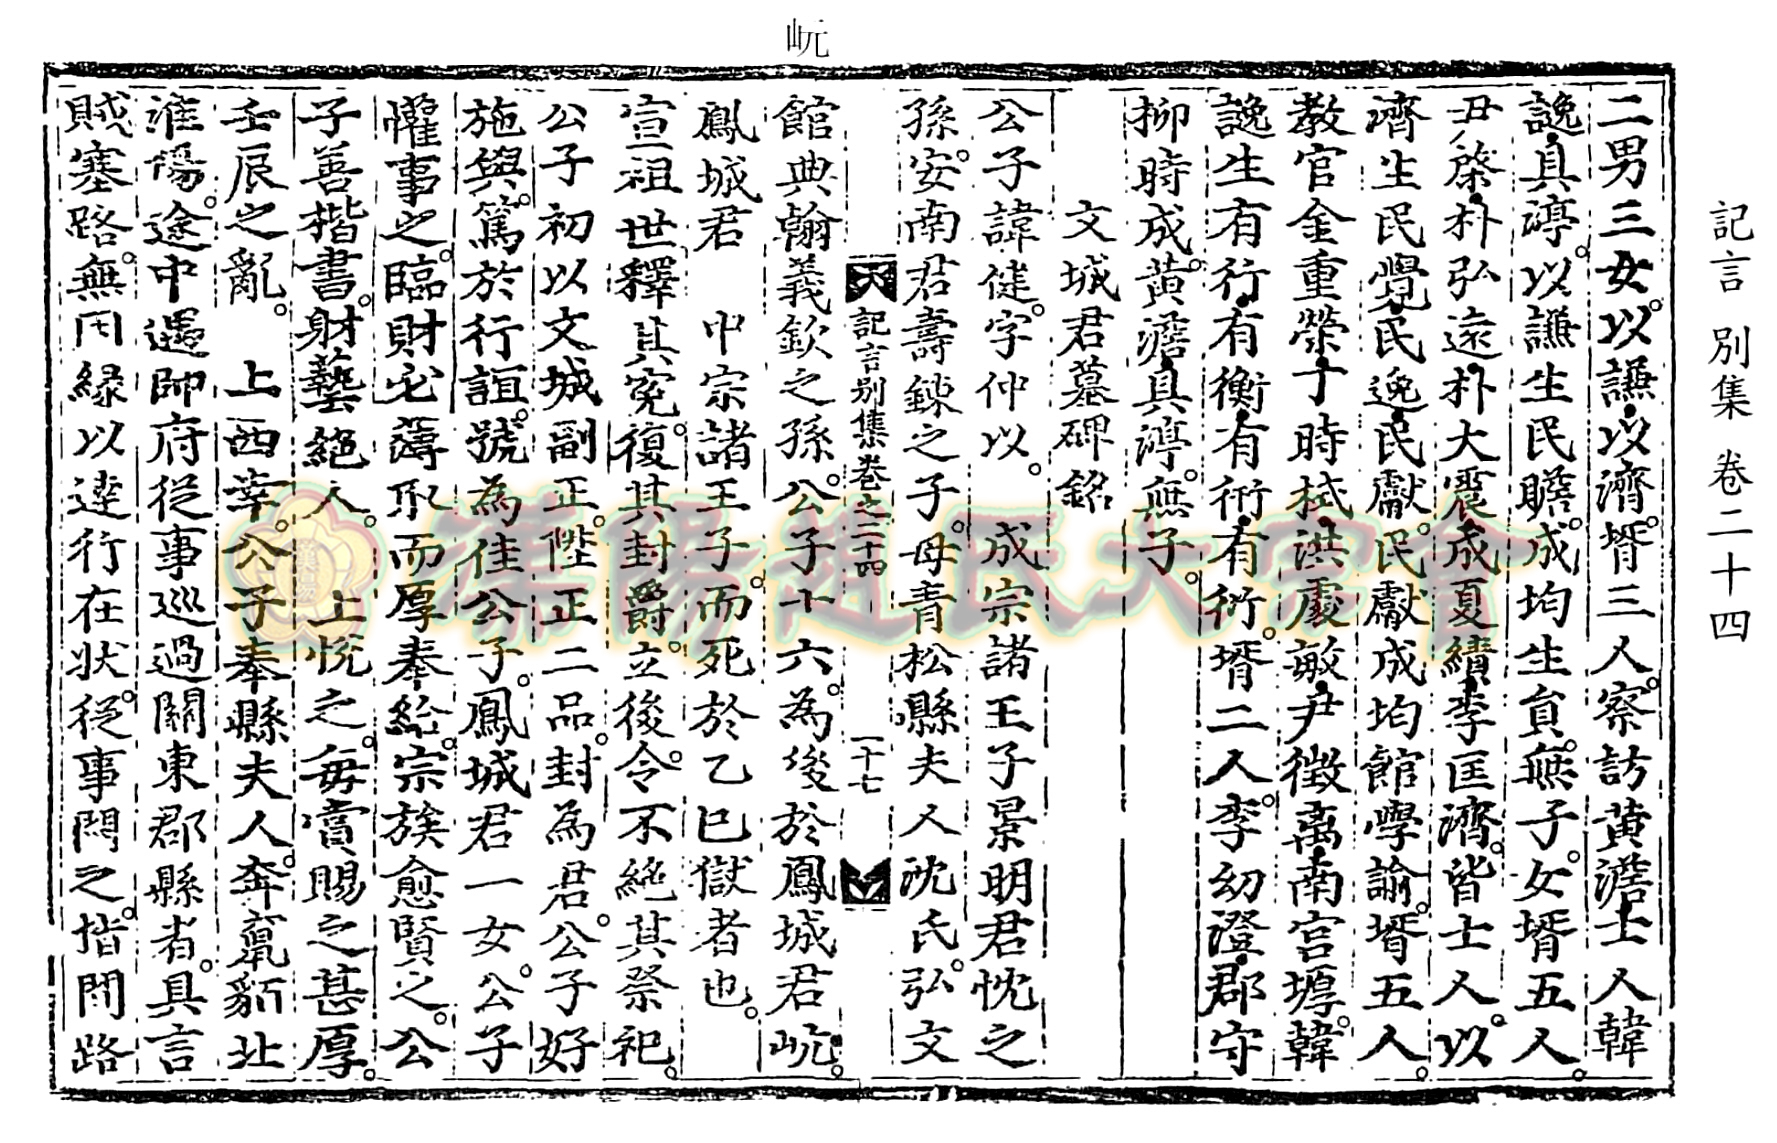 岏
記言 別集 卷二十四
二男三女以讌以濟壻三人察訪黃澹士人韓
譏具渟以讌生民瞻成均生員無子女壻五人
尹棨朴弘遠朴大震成夏績李匡濟皆士人以
濟生民覺民逸民獻民獻成均館學諭壻五人
教官金重榮丁時栻洪處敏尹徵禼南宮㙐韓
譏生有行有衡有衎有衍壻二人李幼澄郡守
柳時成黃澹具渟無子
文城君墓碑銘
公子諱健字仲以 成宗諸王子景明君忱之
孫安南君壽鍊之子母青松縣夫人沈氏弘文
記言別集卷之二十四 十七
館典翰義欽之孫公子十六為後於鳳城君岏
鳳城君 中宗諸王子而死於乙巳獄者也
宣祖世釋其冤復其封爵立後令不絶其祭祀
公子初以文城副正陞正二品封為君公子好
施與篤於行誼號為佳公子鳳城君一女公子
懽事之臨財必薄取而厚奉給宗族愈賢之公
子善楷書射藝絶人 上悅之每賞賜之甚厚
壬辰之亂 上西幸公子奉縣夫人奔竄貊北
淮陽途中遇帥府從事巡過關東郡縣者具言
賊塞路無因緣以達行在狀從事悶之指間路